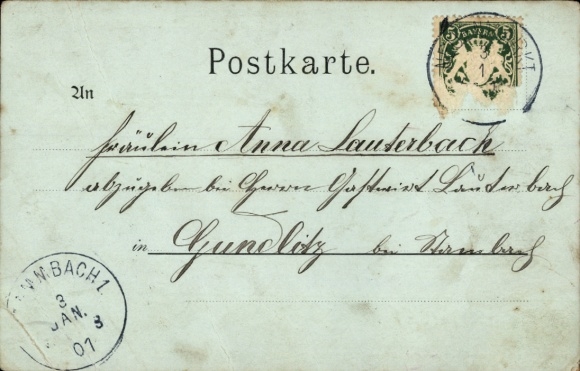 5 BAYERN 5
Postkarte.
An
Fräulein Anna Lauterbach
abzugeben bei Herrn Gastwirt Lauterbach
in Gundlitz bei Stambach
MBACH 1.
3
JAN. 3
01